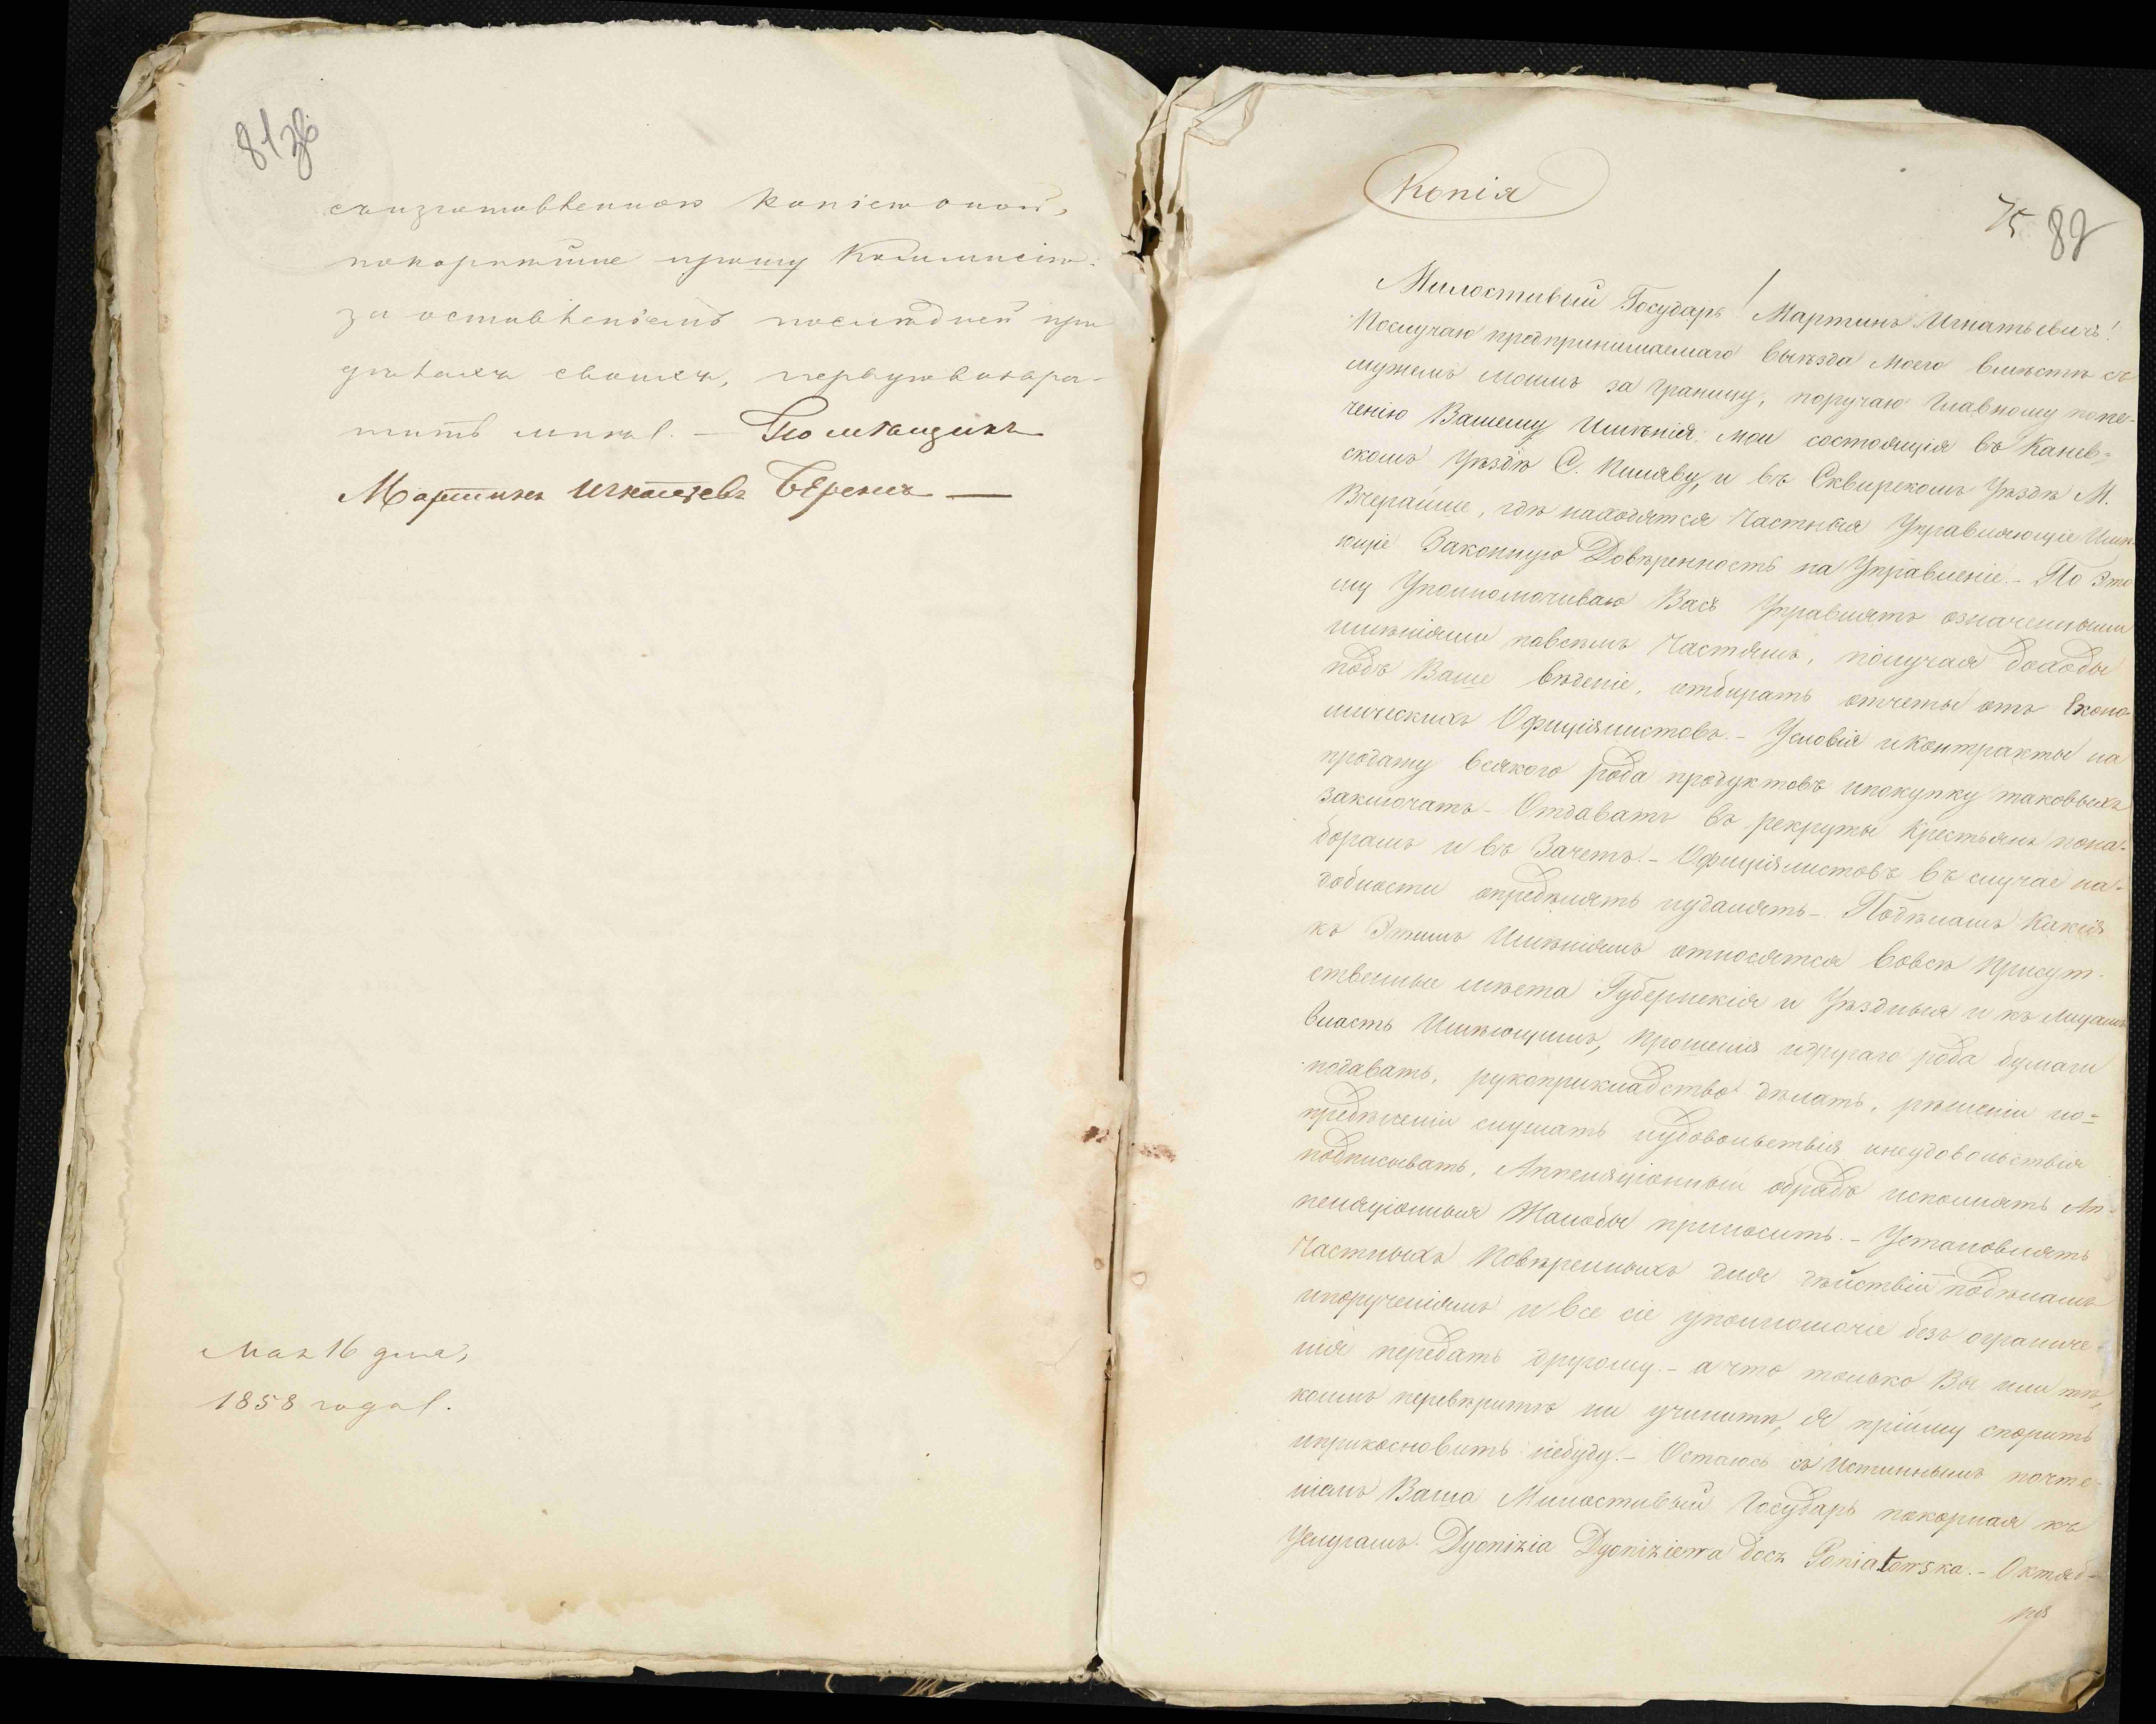 81 зв
съизготовленною копіею оной,
покорнѣйше прошу Коммисію:
за оставленіемъ последней при
дѣлахъ своихъ, первую возвра-
тить мнѣ. — Помѣщикъ
Мартинъ Игнатьевъ —
Мая 16 дня,
1858 года.
Копія
75 82
Милостивый Государь! Мартинъ Игнатьевичъ!
Послучаю предпринимаемаго выѣзда моего вмѣстѣ съ
мужемъ моимъ за границу, поручаю главному попе-
ченію Вашему Имѣнія мои состоящія въ Канев-
скомъ Уѣздѣ С. Пиляву, и въ Сквирскомъ Уѣздѣ М.
Вчерайше, гдѣ находятся Частныя Управляющіе Имѣ-
ющіе Законную Довѣренность на Управленіе. - По Это
му Уполномочиваю Васъ Управлять означенными
имѣніями повсемъ Частямъ, получая доходы
подъ Ваше вѣденіе, отбирать отчеты отъ Еконо-
мическихъ Официялистовъ. - Условія и Контракты на
продажу всякого рода продуктовъ и покупку таковыхъ
заключать - Отдавать въ рекруты Крестьянъ пона-
борамъ и въ Зачетъ. - Официялистовъ въ случае на-
добности опредѣлять иудалять - Подѣламъ Какія
къ Этимъ Имѣніямъ относятся вовсѣ Присут-
ственные мѣста Губернскія и Уѣздныя и къ лицамъ
власть Имѣющимъ, Прошенія идругаго рода бумаги
подавать, рукоприкладство дѣлать, рѣшеніи ио-
предѣленіи слушать иудовольствія инеудовольствія
подписывать, Аппеляціонный обрядъ исполнять Ап-
пеляціонныя Жалобы приносить. - Установлять
Частныхъ Повѣренныхъ для дѣйствій подѣламъ
ипорученіямъ и все сіе уполномочіе безъ ограниче-
нія передать другому. - а что только Вы или тѣ,
коимъ перевѣрите ни учините, Я прійму спорить
иприкосновить небуду. - Остаюсь съ Истиннымъ почте-
ніемъ Ваша Милостивый Государь покорная къ
Услугамъ. Dyonizia Dyoniziewa досъ Poniatowska. - Октяб-
ря